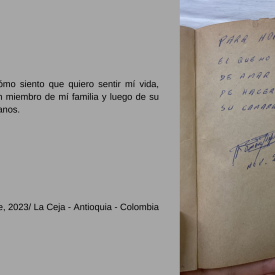 ómo siento que quiero sentir mí vida,
n miembro de mí familia y luego de su
anos.
e, 2023/ La Ceja - Antioquia - Colombia
PARA HO
EL QUE NO
DE AMAR
DE HACER
SU